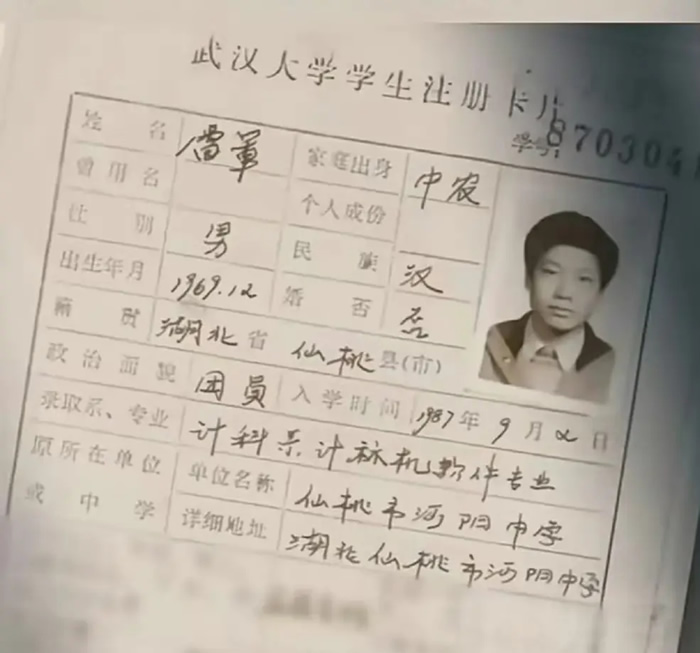 武汉大学学生注册卡片
学号: 8703041
姓名 雷军 家庭出身 中农
曾用名 个人成份
性别 男 民族 汉
出生年月 1969.12 婚否 否
籍贯 湖北省 仙桃县(市)
政治面貌 团员 入学时间 1987年9月2日
录取系、专业 计科系计标机软件专业
原所在单位 单位名称 仙桃市沔阳中学
或中学 详细地址 湖北仙桃市沔阳中学